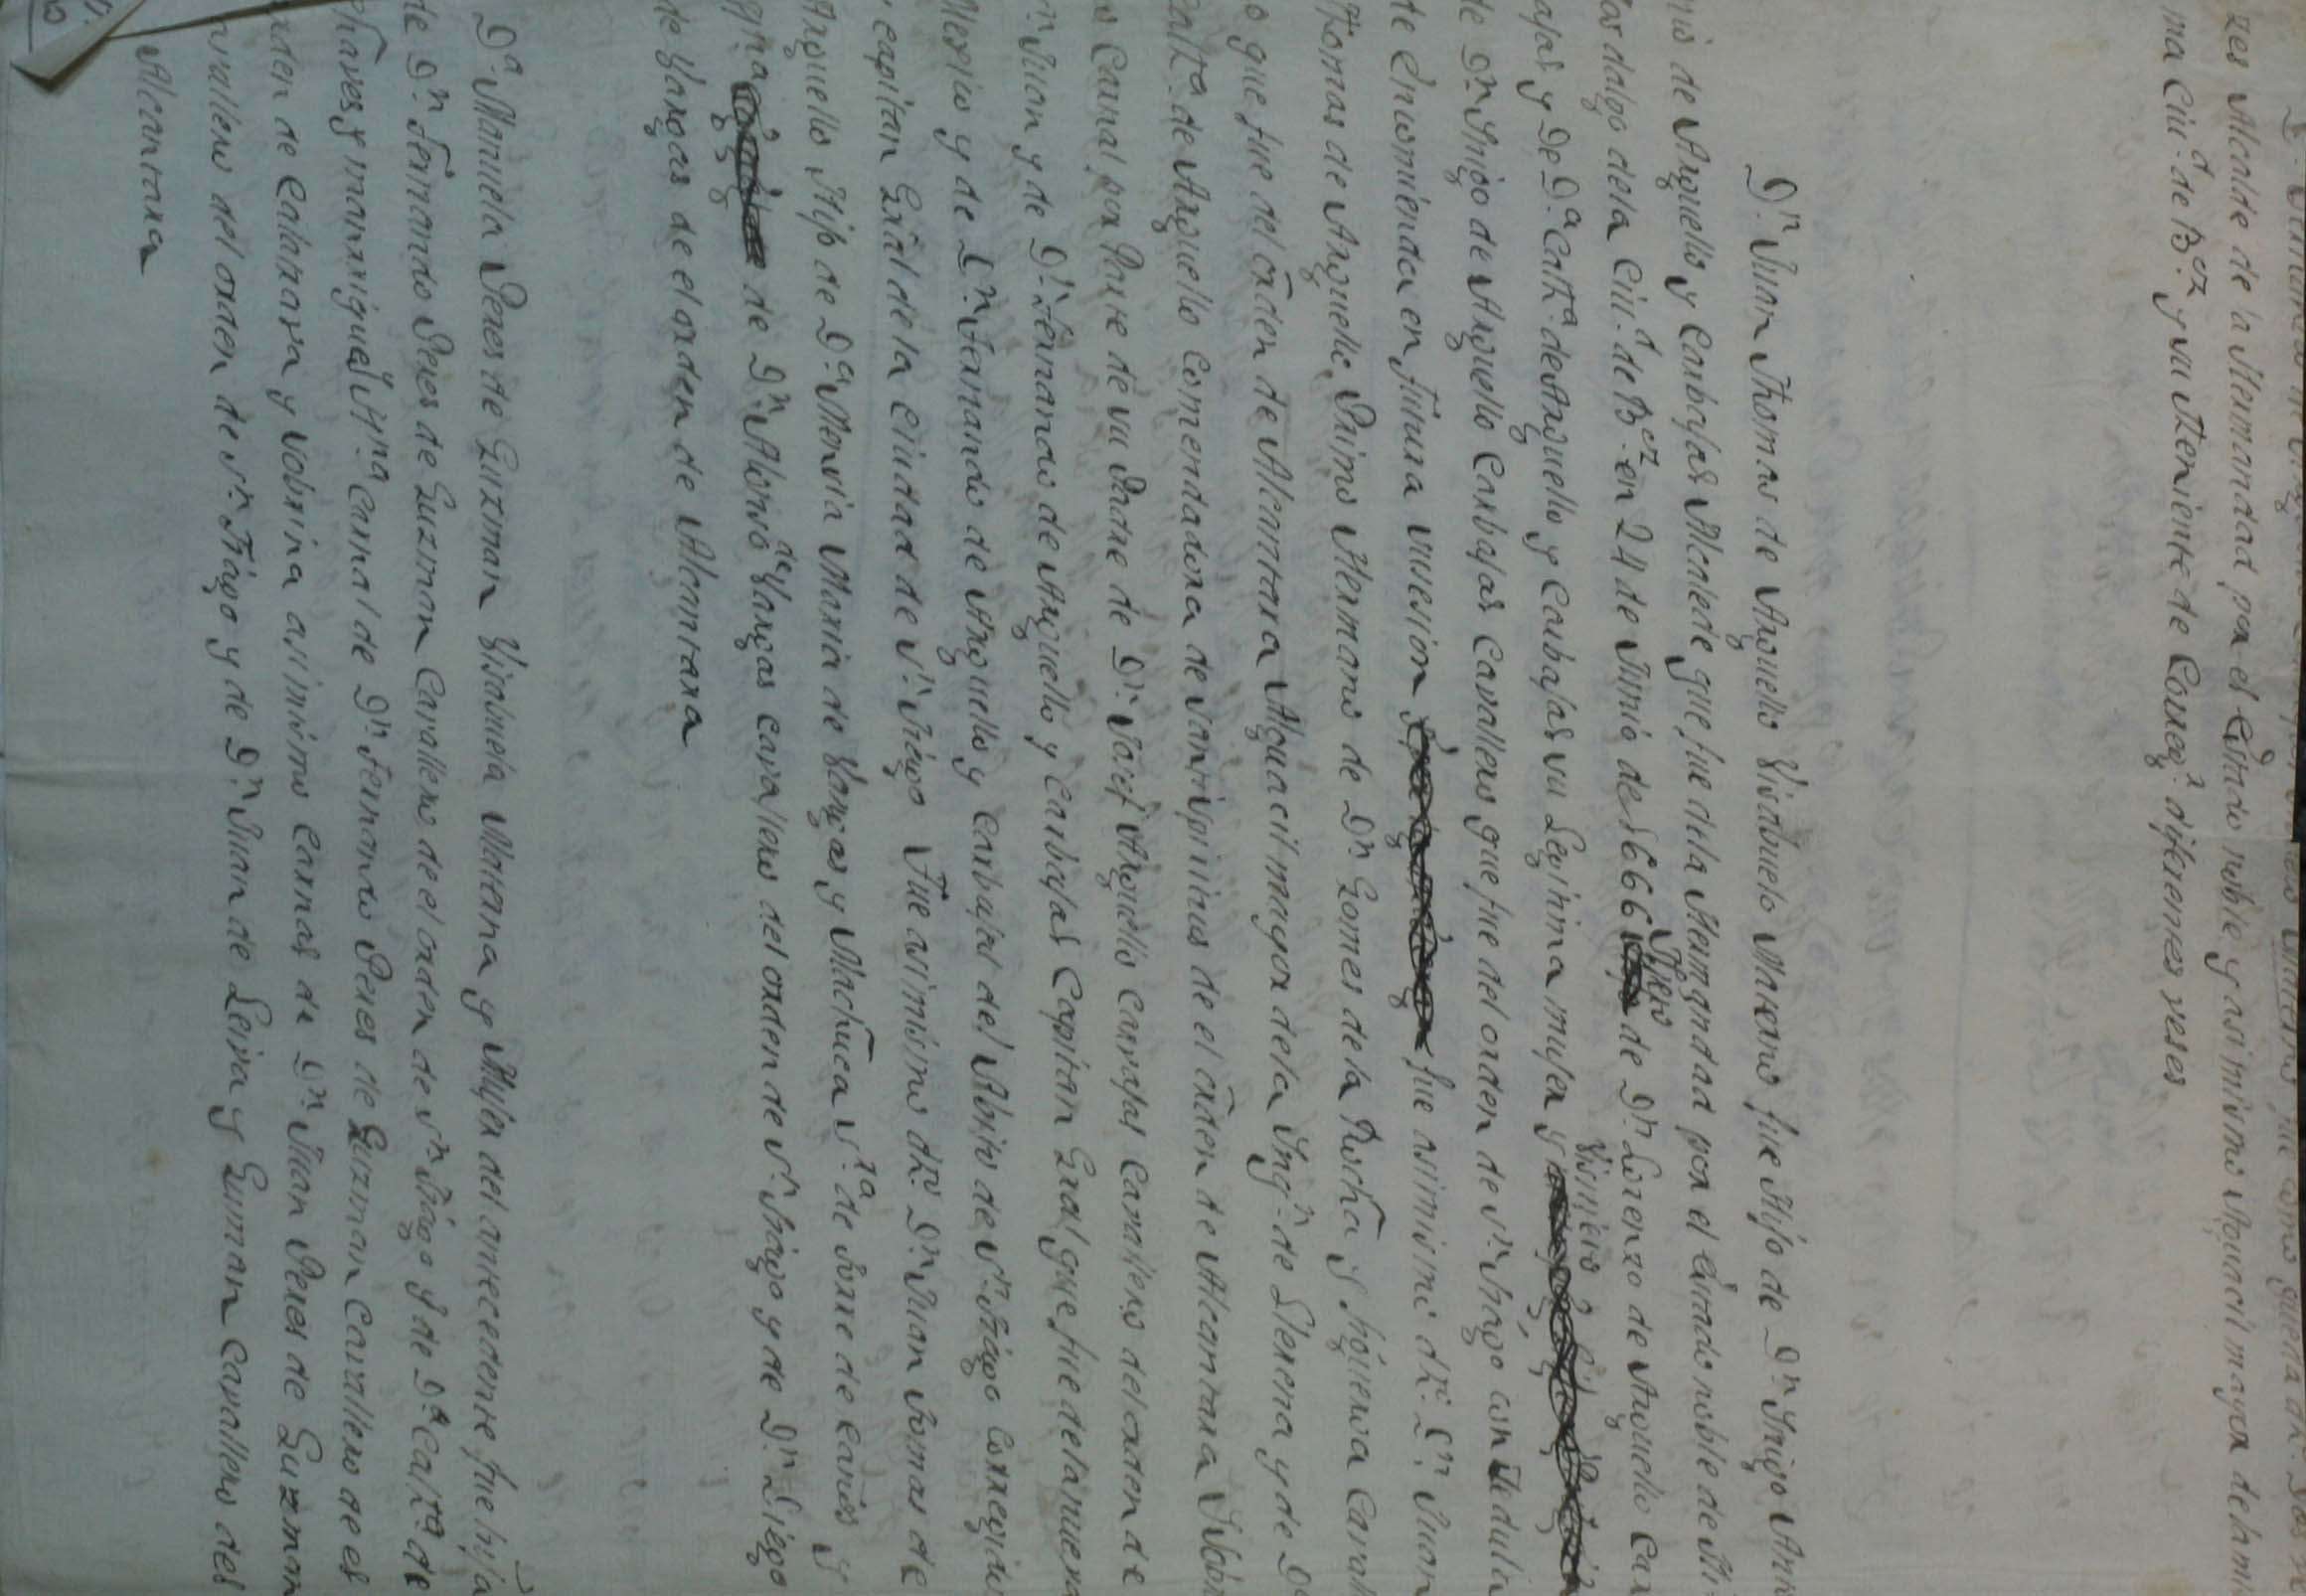 zes Alcalde de la Hermandad por el Estado noble y asimismo Alguacil mayor de la mi
ma Ciu.d de B.ez y su Theniente de Correg.r diferentes veses
D.n Juan Thomas de Arguello Visabuelo Materno fue Hijo de D.n Inigo Anto
nio de Arguello y Carbajal Alcalede que fue de la Hermandad por el Estado noble de Hi
jos dalgo de la Ciu.d de B.ez en 24 de Junio de 1666 Nieto de D.n Lorenzo de Arguello Car
ajal y De D.a Cath.a de Arguello y Carbajal su Legitima muger y Visnieto
de D.n Inigo de Arguello Carbajal Cavallero que fue del orden de S.n Thiago con Zedula
de Encomienda en futura susesion fue asimismo dho D.n Juan
Thomas de Arguello Primo Hermano de D.n Gomes de la Rocha y figueroa Cavall
o que fue del orden de Alcantara Alguacil mayor de la Inq.n de Llerena y de D.a
Cath.a de Arguello Comendadora de Santispiritus de el orden de Alcantara Sobri
o Carnal por Parte de su Padre de D.n Josef Arguello Carvajal Cavallero del orden de
n Juan y de D.n Fernando de Arguello y Carbajal Capitan Gral que fue de la nueva
Mexico y de D.n Fernando de Arguello y Carbajal del Abito de S.n Thiago Corregidor
y capitan Gral de la Ciudad de S.n Thiago Fue asimismo dho D.n Juan Tomas de
Arguello Hijo de D.a Mensia Maria de Vargas y Machuca S.ra de Torre de Caños y
de D.n Alonso de Vargas cavallero del orden de S.n Thiago y de D.n Diego
de Vargas de el orden de Alcantara
D.a Manuela Peres de Guzman Visabuela Materna y Mujer del antecedente fue hija
de D.n Fernando Peres de Guzman Cavallero de el orden de S.n Thiago y de D.a Cath.a de
chaves y manrrique y Hrna Carnal de D.n Fernando Peres de Guzman Cavallero de el
orden de Calatrava y sobrina asimismo Carnal de D.n Juan Peres de Guzman
cavallero del orden de S.n Thiago y de D.n Juan de Leiva y Guzman Cavallero del
Alcantara